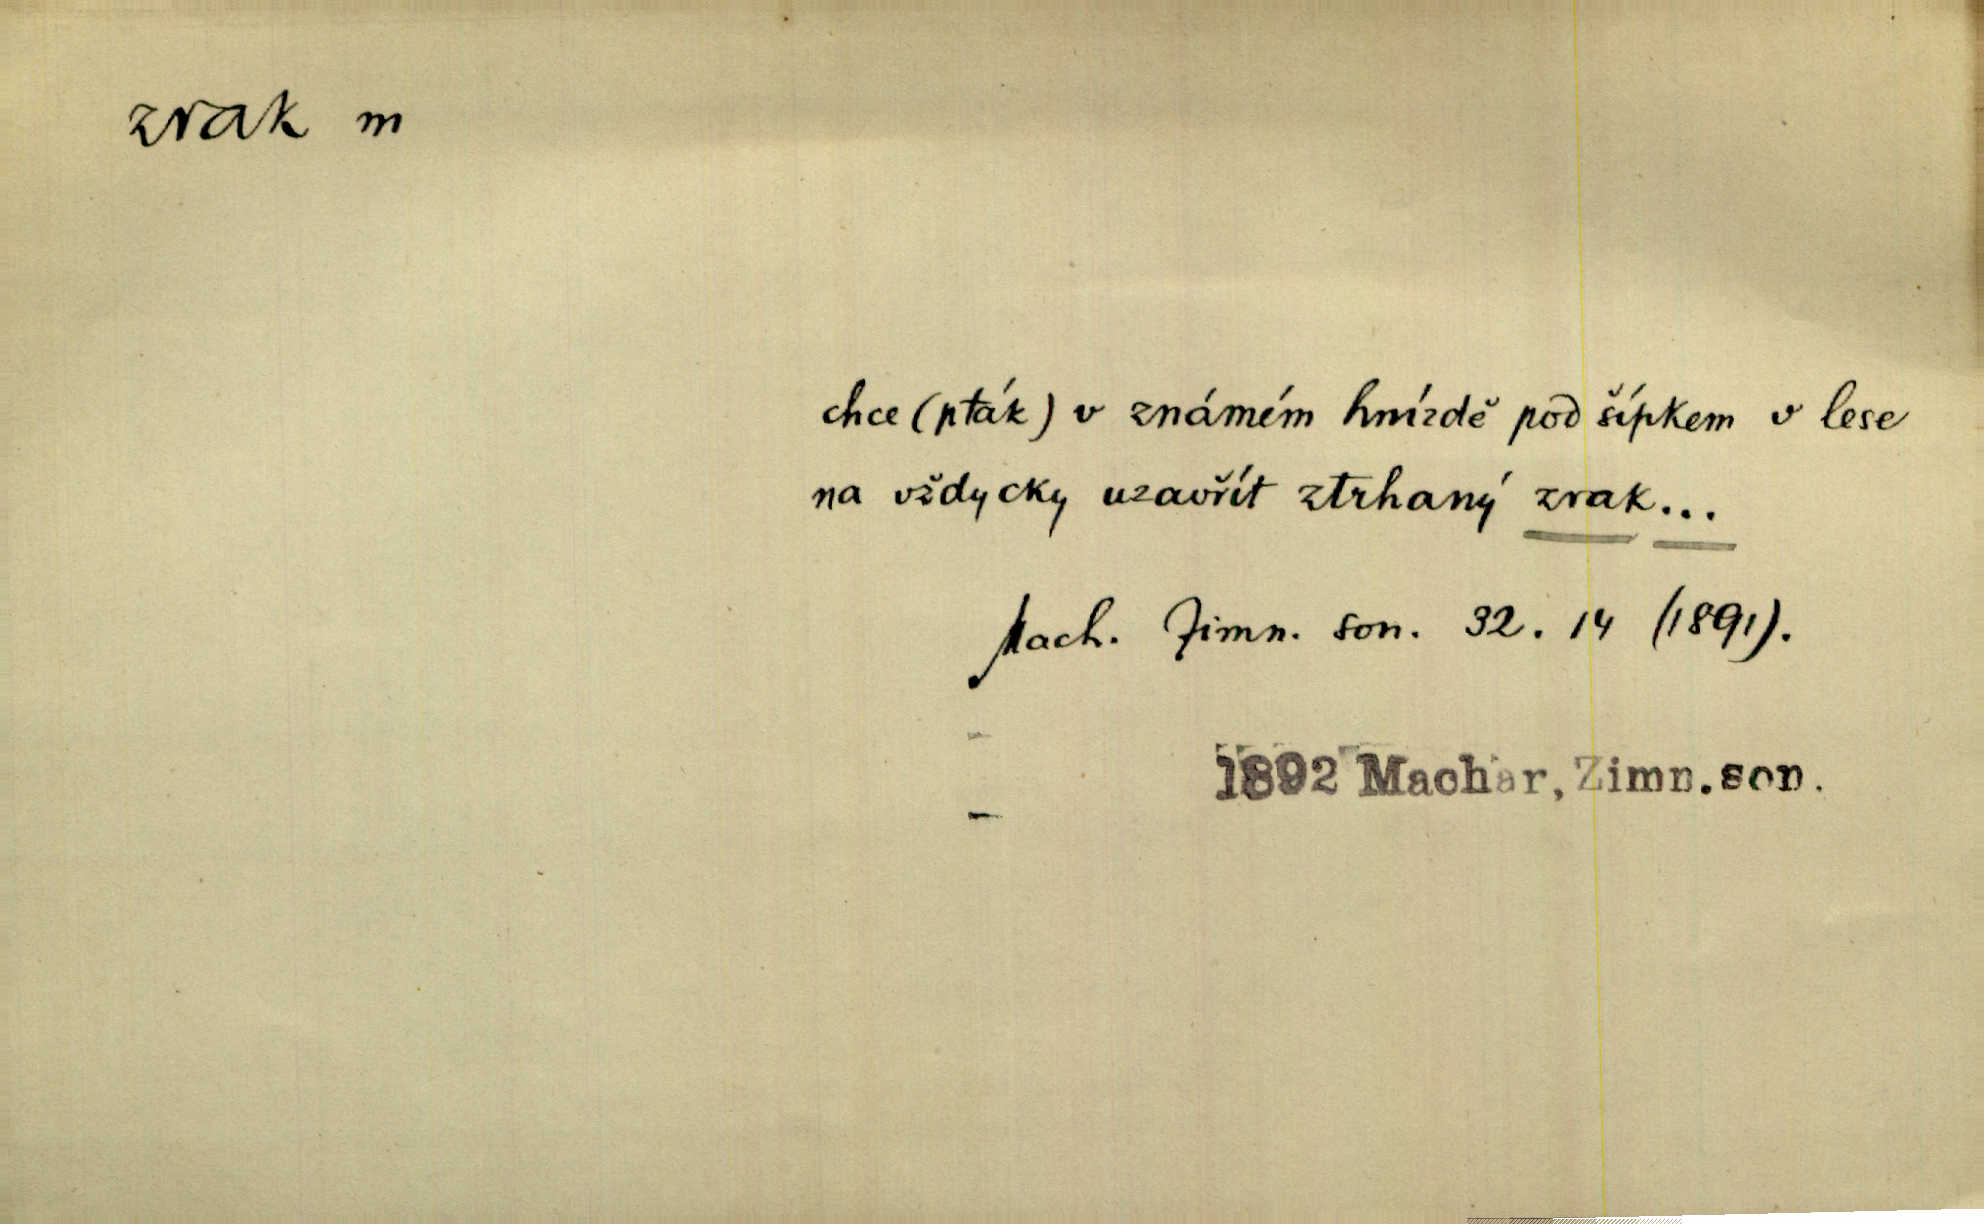 zrak m
chce (pták) v známém hnízdě pod šípkem v lese
na vždycky uzavřít ztrhaný zrak...
Mach. Zimn. son. 32. 14 (1891).
1892 Machar, Zimn. son.